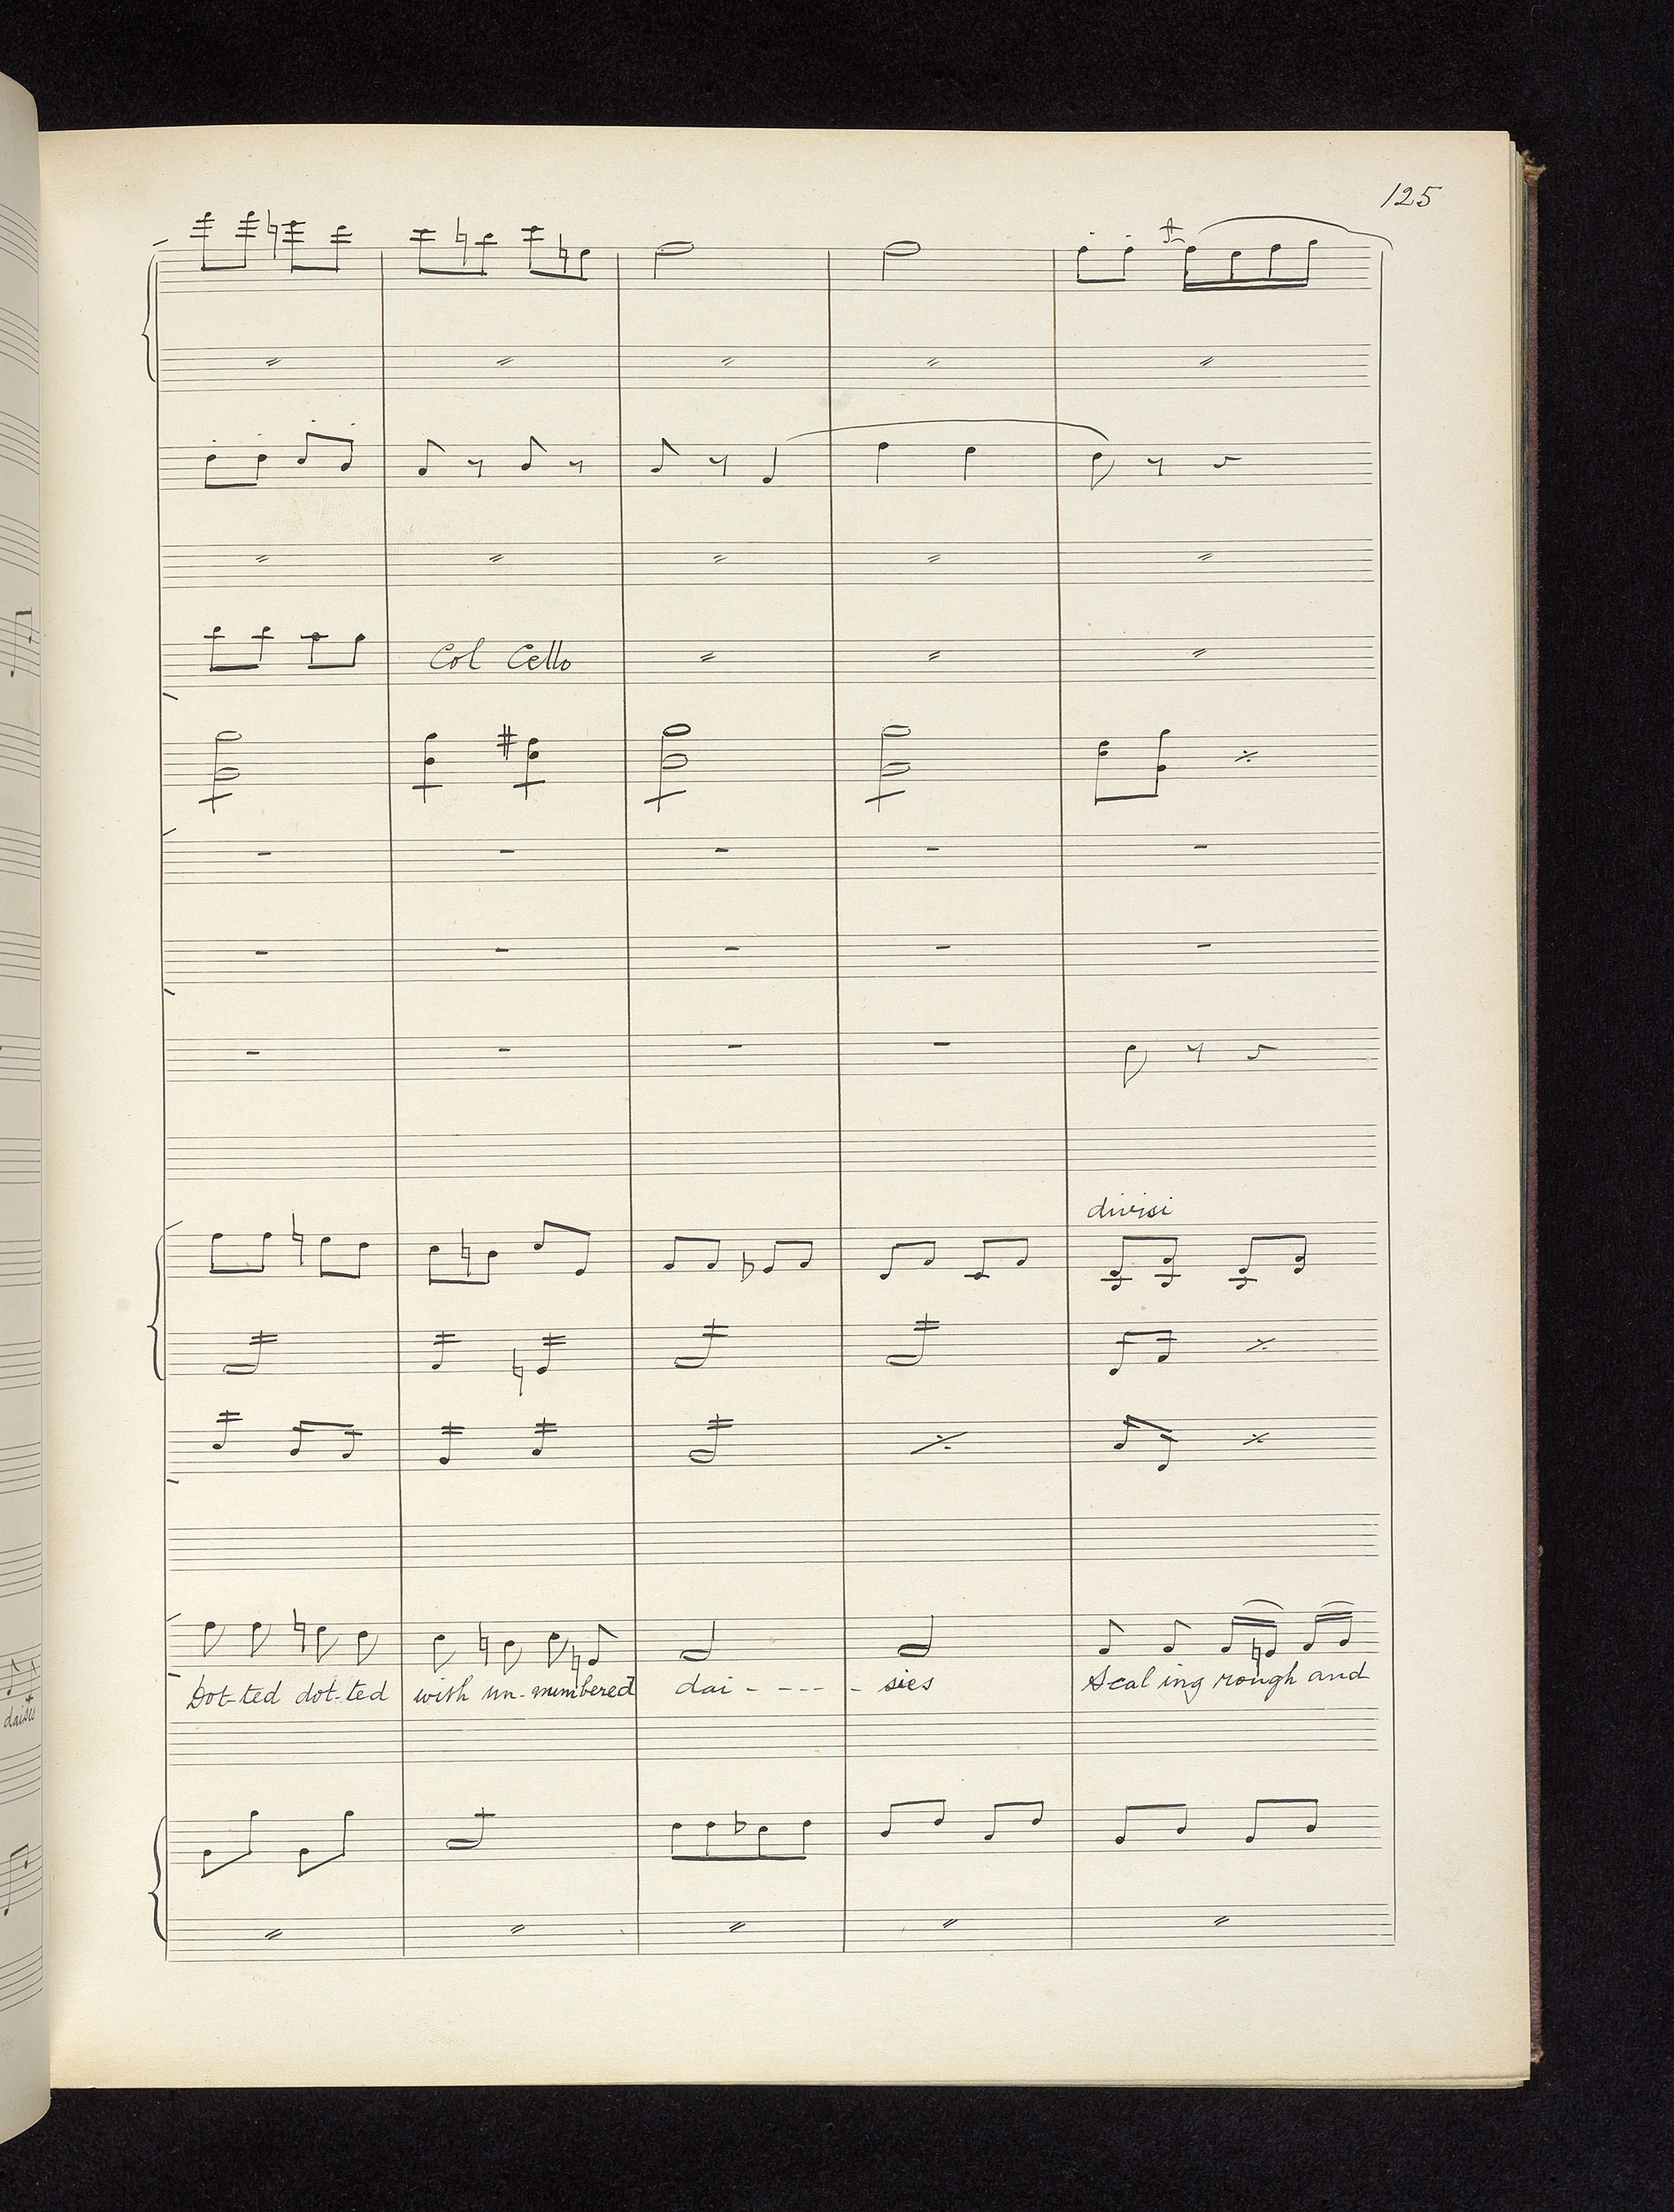 125
Col Cello
divisi
Dot-ted dot-ted with un-numbered dai - - - - - sies Scal ing rough and
daisies